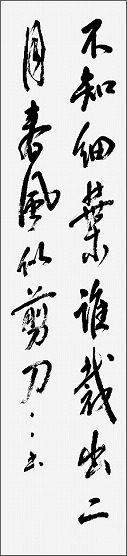 不知细叶谁裁出二
月春风似剪刀